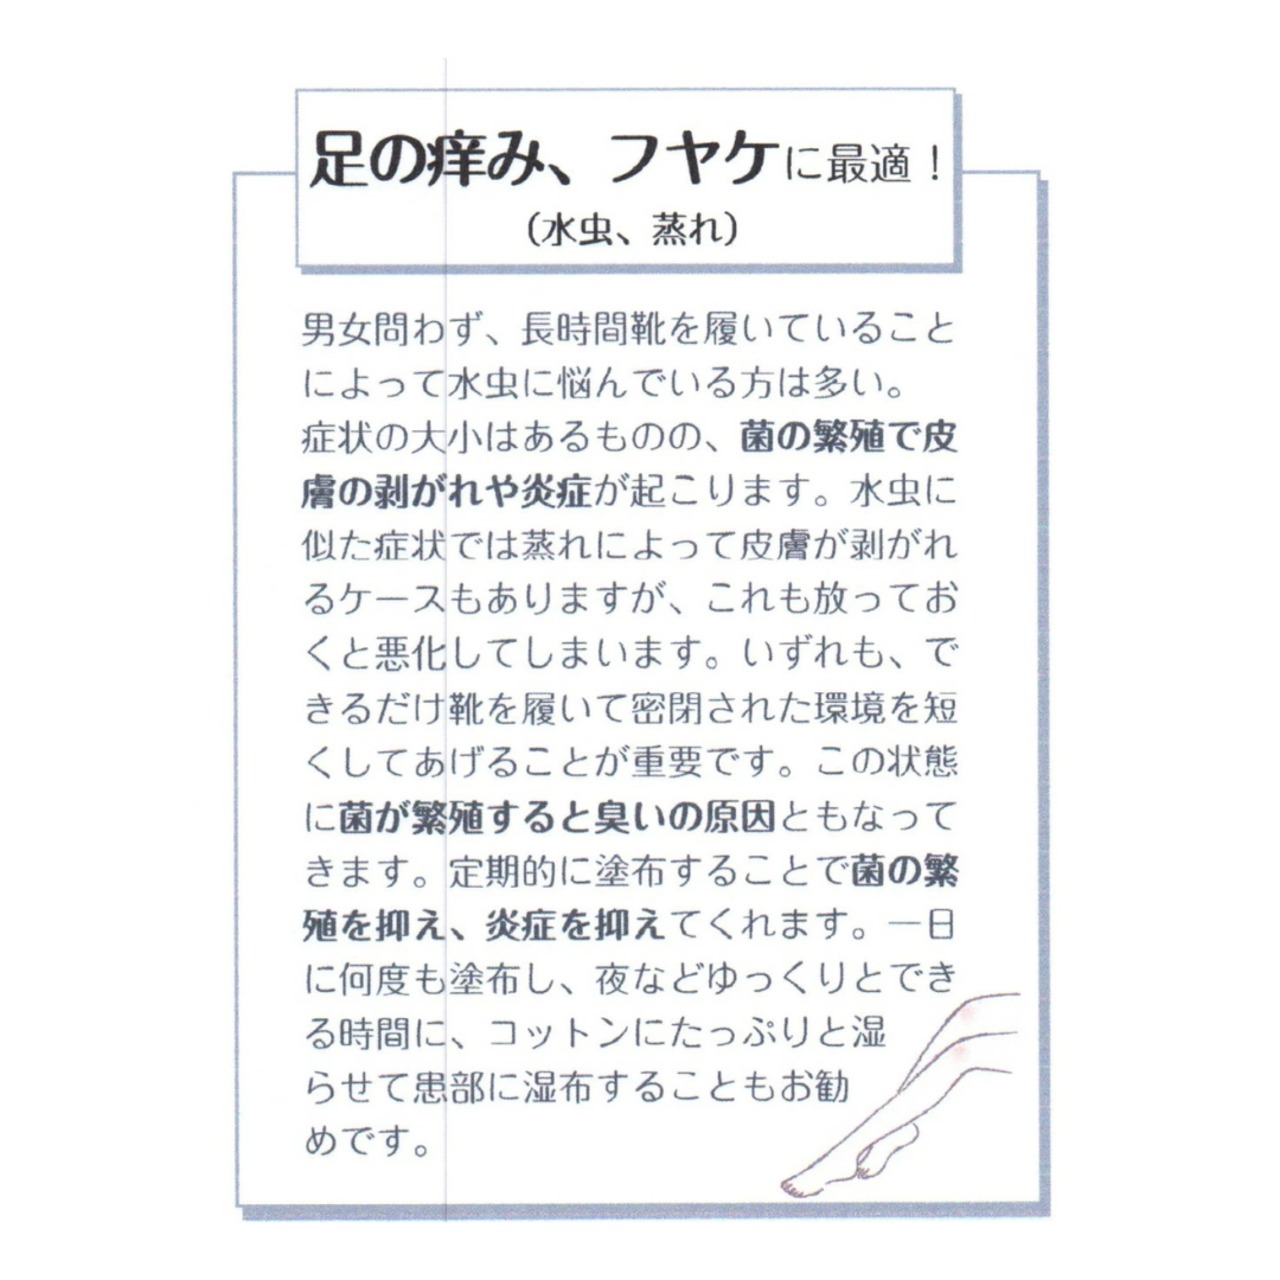 足の痒み、フヤケに最適！
（水虫、蒸れ）
男女問わず、長時間靴を履いていること
によって水虫に悩んでいる方は多い。
症状の大小はあるものの、菌の繁殖で皮
膚の剥がれや炎症が起こります。水虫に
似た症状では蒸れによって皮膚が剥がれ
るケースもありますが、これも放ってお
くと悪化してしまいます。いずれも、で
きるだけ靴を履いて密閉された環境を短
くしてあげることが重要です。この状態
に菌が繁殖すると臭いの原因ともなって
きます。定期的に塗布することで菌の繁
殖を抑え、炎症を抑えてくれます。一日
に何度も塗布し、夜などゆっくりとでき
る時間に、コットンにたっぷりと湿
らせて患部に湿布することもお勧
めです。